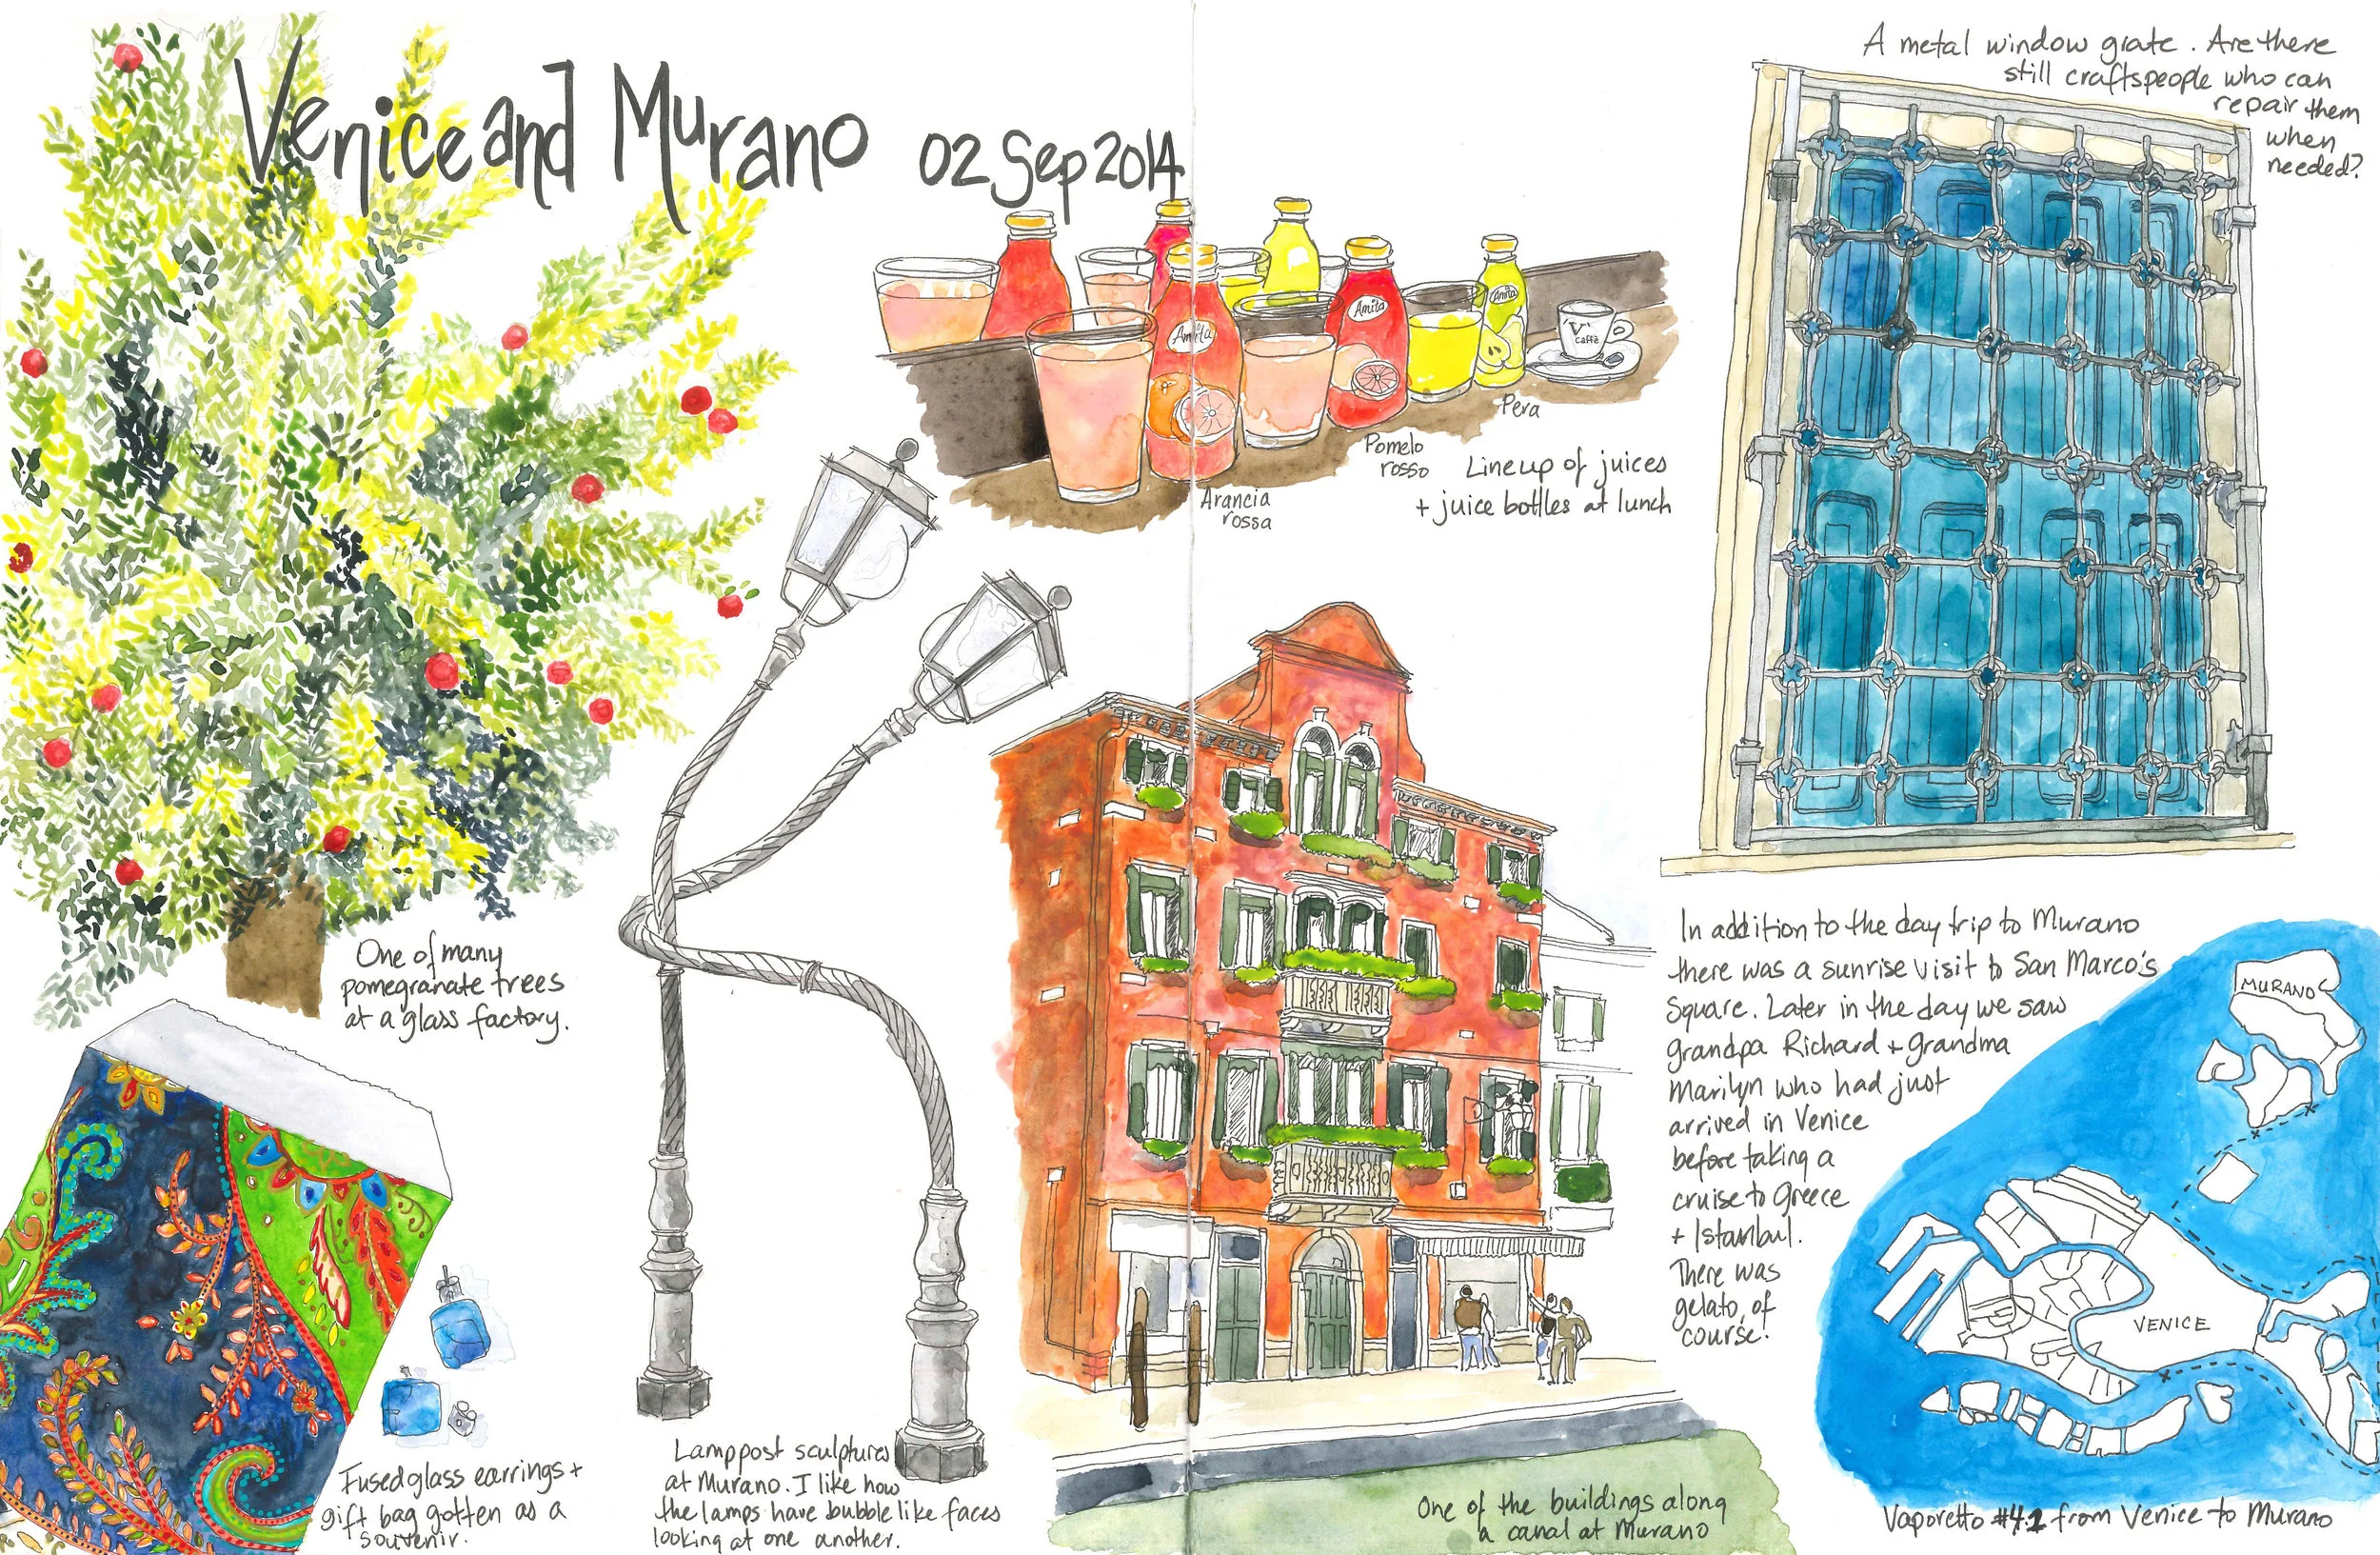 Venice and Murano 02 Sep 2014
A metal window grate. Are there
still craftspeople who can
repair them
when
needed?
Amita
Amita
Amita
V
caffè
Pera
Pomelo
rosso
Arancia
rossa
Lineup of juices
+ juice bottles at lunch
One of many
pomegranate trees
at a glass factory.
In addition to the day trip to Murano
there was a sunrise visit to San Marco's
Square. Later in the day we saw
grandpa Richard + grandma
Marilyn who had just
arrived in Venice
before taking a
cruise to Greece
+ Istanbul.
There was
gelato, of
course!
MURANO
VENICE
Fused glass earrings +
gift bag gotten as a
souvenir.
Lamppost sculptures
at Murano. I like how
the lamps have bubble like faces
looking at one another.
One of the buildings along
a canal at Murano
Vaporetto #4.1 from Venice to Murano